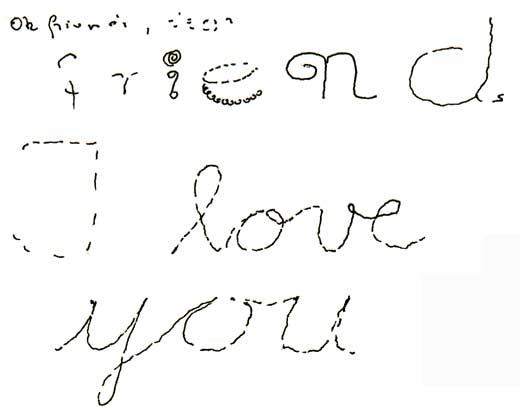 Oh friends,
friends
I love
you